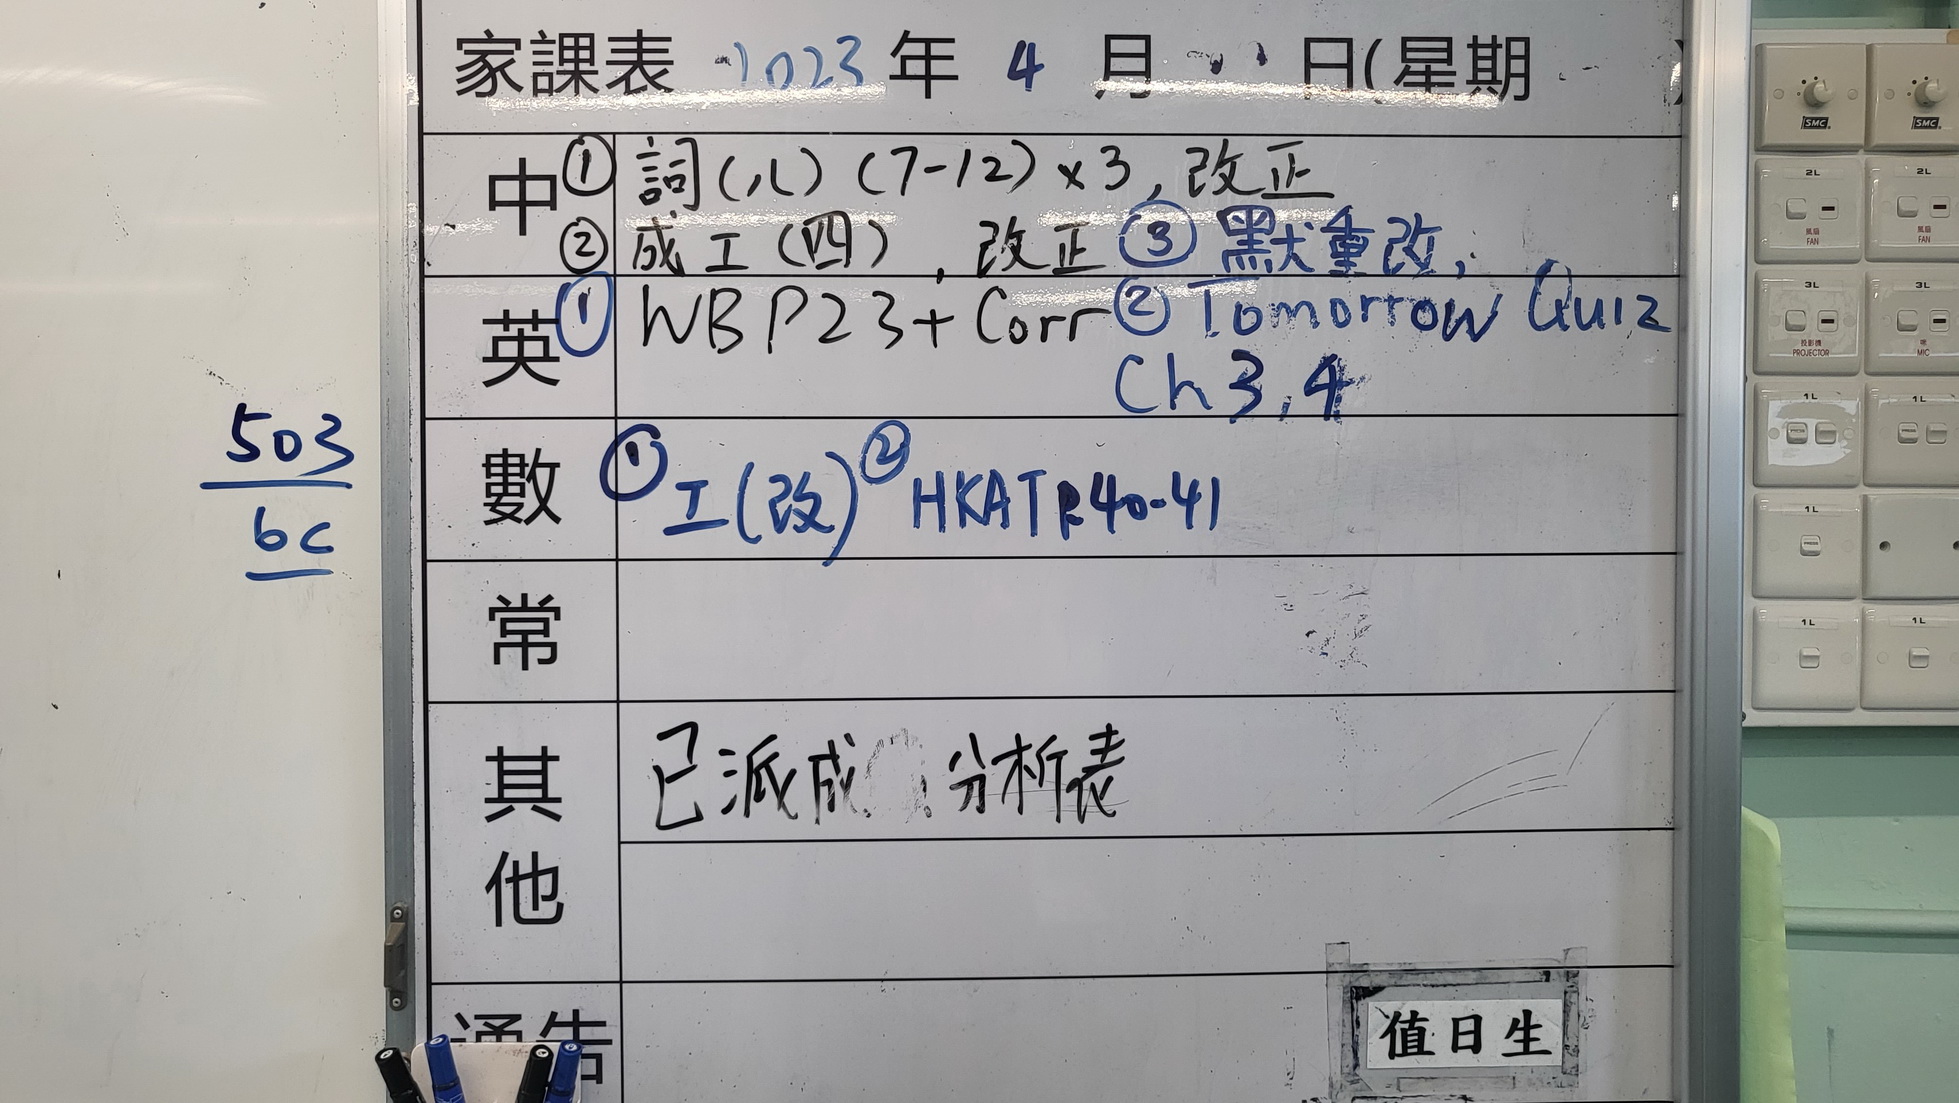 家課表 2023 年 4 月 日(星期 )
中 ① 詞(八) (7-12) x 3, 改正
② 成工(四), 改正 ③ 默重改,
英 ① WB P23 + Corr ② Tomorrow Quiz
Ch 3, 4
數 ① 工(改) ② HKAT P.40-41
常
其他 已派成 分析表
通告
值日生
503
6C
SMC
SMC
2L
2L
風扇
FAN
風扇
FAN
3L
3L
投影機
PROJECTOR
咪
MIC
1L
1L
PRESS
PRESS
1L
PRESS
1L
1L